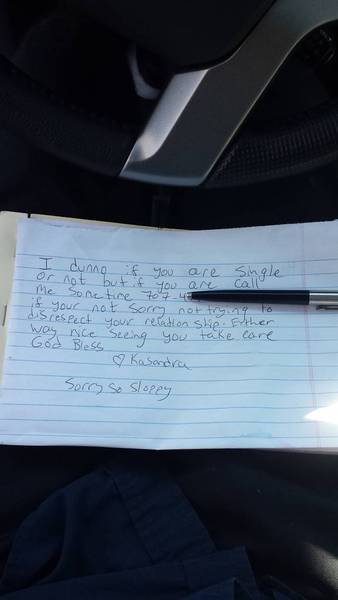 I dunno if you are single
or not but if you are call
me sometime 707-4
if your not sorry not trying to
disrespect your relation ship. Either
way nice seeing you take care
God Bless
♡ Kasandra
Sorry so sloppy